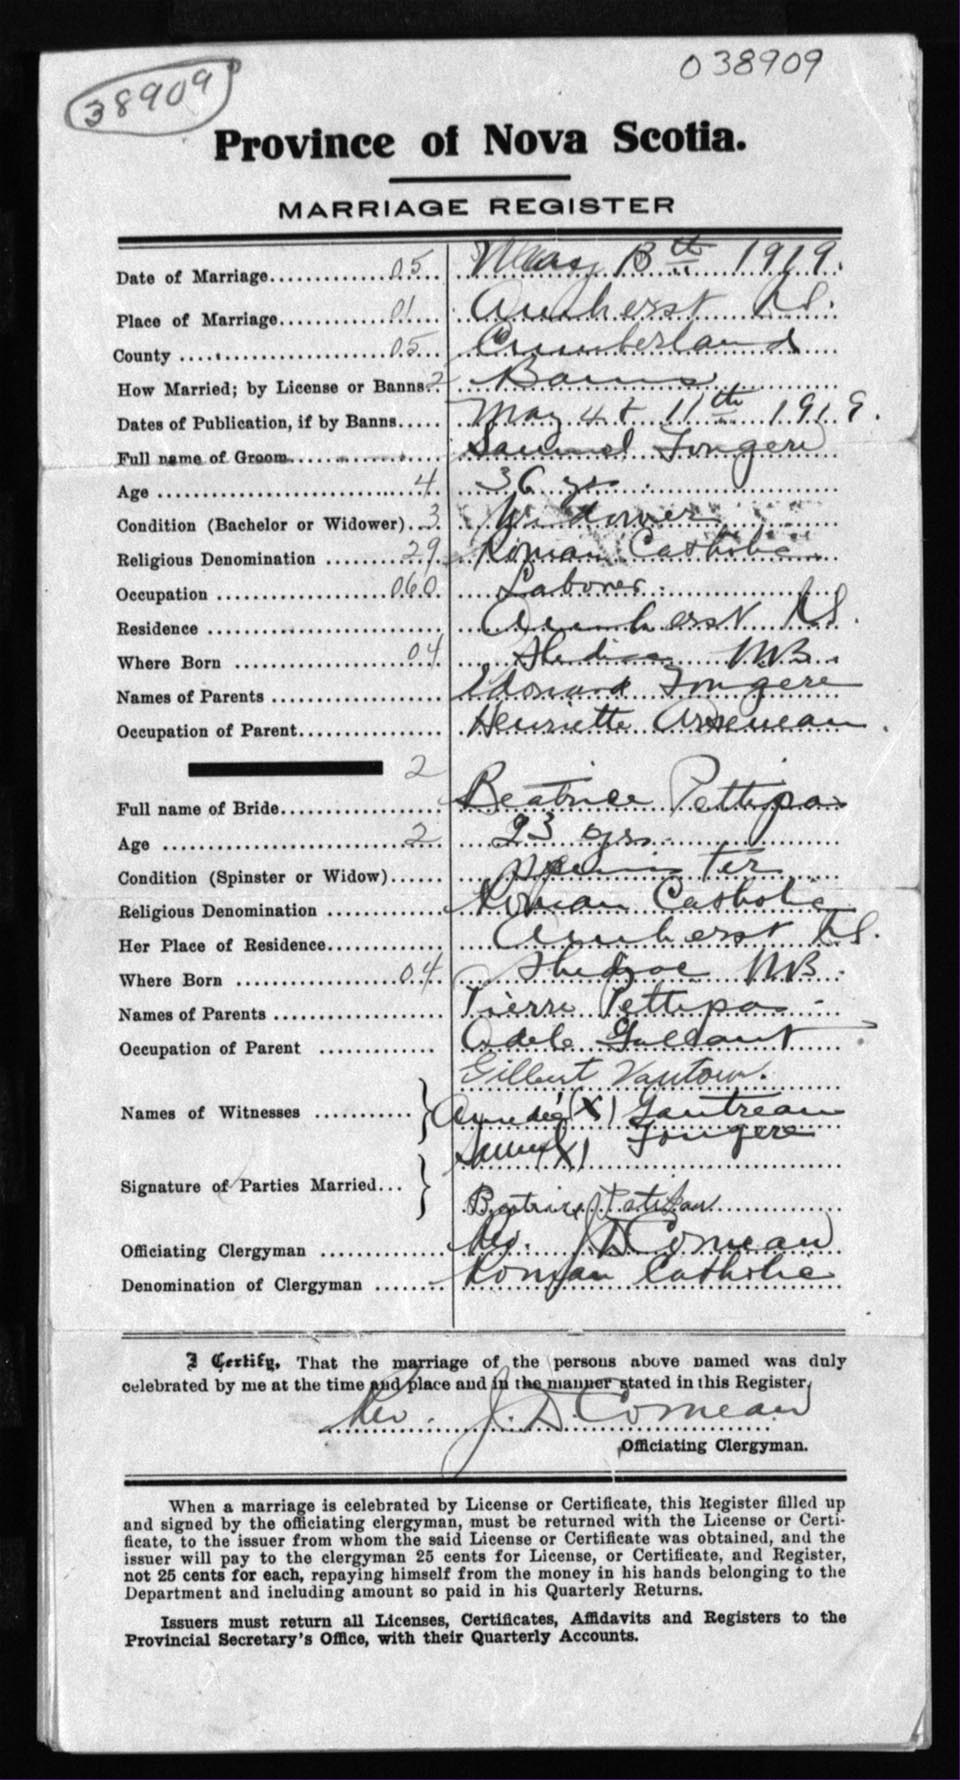 38909
038909
Province of Nova Scotia.
MARRIAGE REGISTER
Date of Marriage 05 May 13th 1919.
Place of Marriage 01 Amherst N.S.
County 05 Cumberland
How Married; by License or Banns. 2 Banns
Dates of Publication, if by Banns May 4 & 11th 1919.
Full name of Groom Samuel Fougere
Age 4 36 yrs.
Condition (Bachelor or Widower) 3 Widower
Religious Denomination 29 Roman Catholic
Occupation 060 Laborer.
Residence Amherst N.S.
Where Born 04 Shediac N.B.
Names of Parents Fougere
Occupation of Parent Henriette Arseneau.
2
Full name of Bride Beatrice Pettipas
Age 2 23 yrs.
Condition (Spinster or Widow) Spinster
Religious Denomination Roman Catholic
Her Place of Residence Amherst N.S.
Where Born 04 N.B.
Names of Parents Pierre Pettipas -
Occupation of Parent Adele Gallant
Gilbert
Names of Witnesses (X) Gautreau
Samuel (X) Fougere
Signature of Parties Married
Officiating Clergyman Rev. J. D. Comeau
Denomination of Clergyman Roman Catholic
I Certify, That the marriage of the persons above named was duly
celebrated by me at the time and place and in the manner stated in this Register.
Rev. J. D. Comeau
Officiating Clergyman.
When a marriage is celebrated by License or Certificate, this Register filled up
and signed by the officiating clergyman, must be returned with the License or Certi-
ficate, to the issuer from whom the said License or Certificate was obtained, and the
issuer will pay to the clergyman 25 cents for License, or Certificate, and Register,
not 25 cents for each, repaying himself from the money in his hands belonging to the
Department and including amount so paid in his Quarterly Returns.
Issuers must return all Licenses, Certificates, Affidavits and Registers to the
Provincial Secretary's Office, with their Quarterly Accounts.